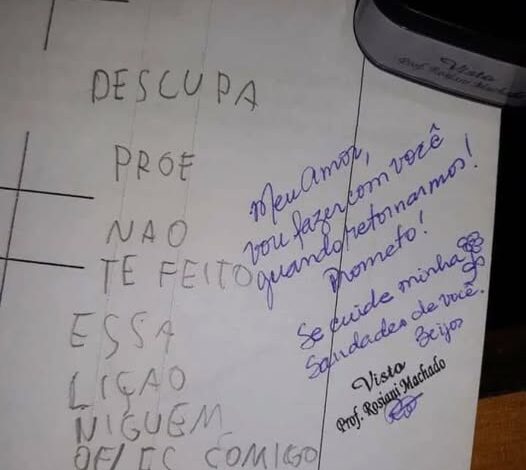 Visto
Prof. Rosiani Machado
DESCUPA
PROE
NAO
TE FEITO
ESSA
LIÇAO
NIGUEM
COMIGO
Meu amor,
vou fazer com você
quando retornarmos!
Prometo!
Se cuide minha
Saudades de você.
Beijos
Visto
Prof. Rosiani Machado